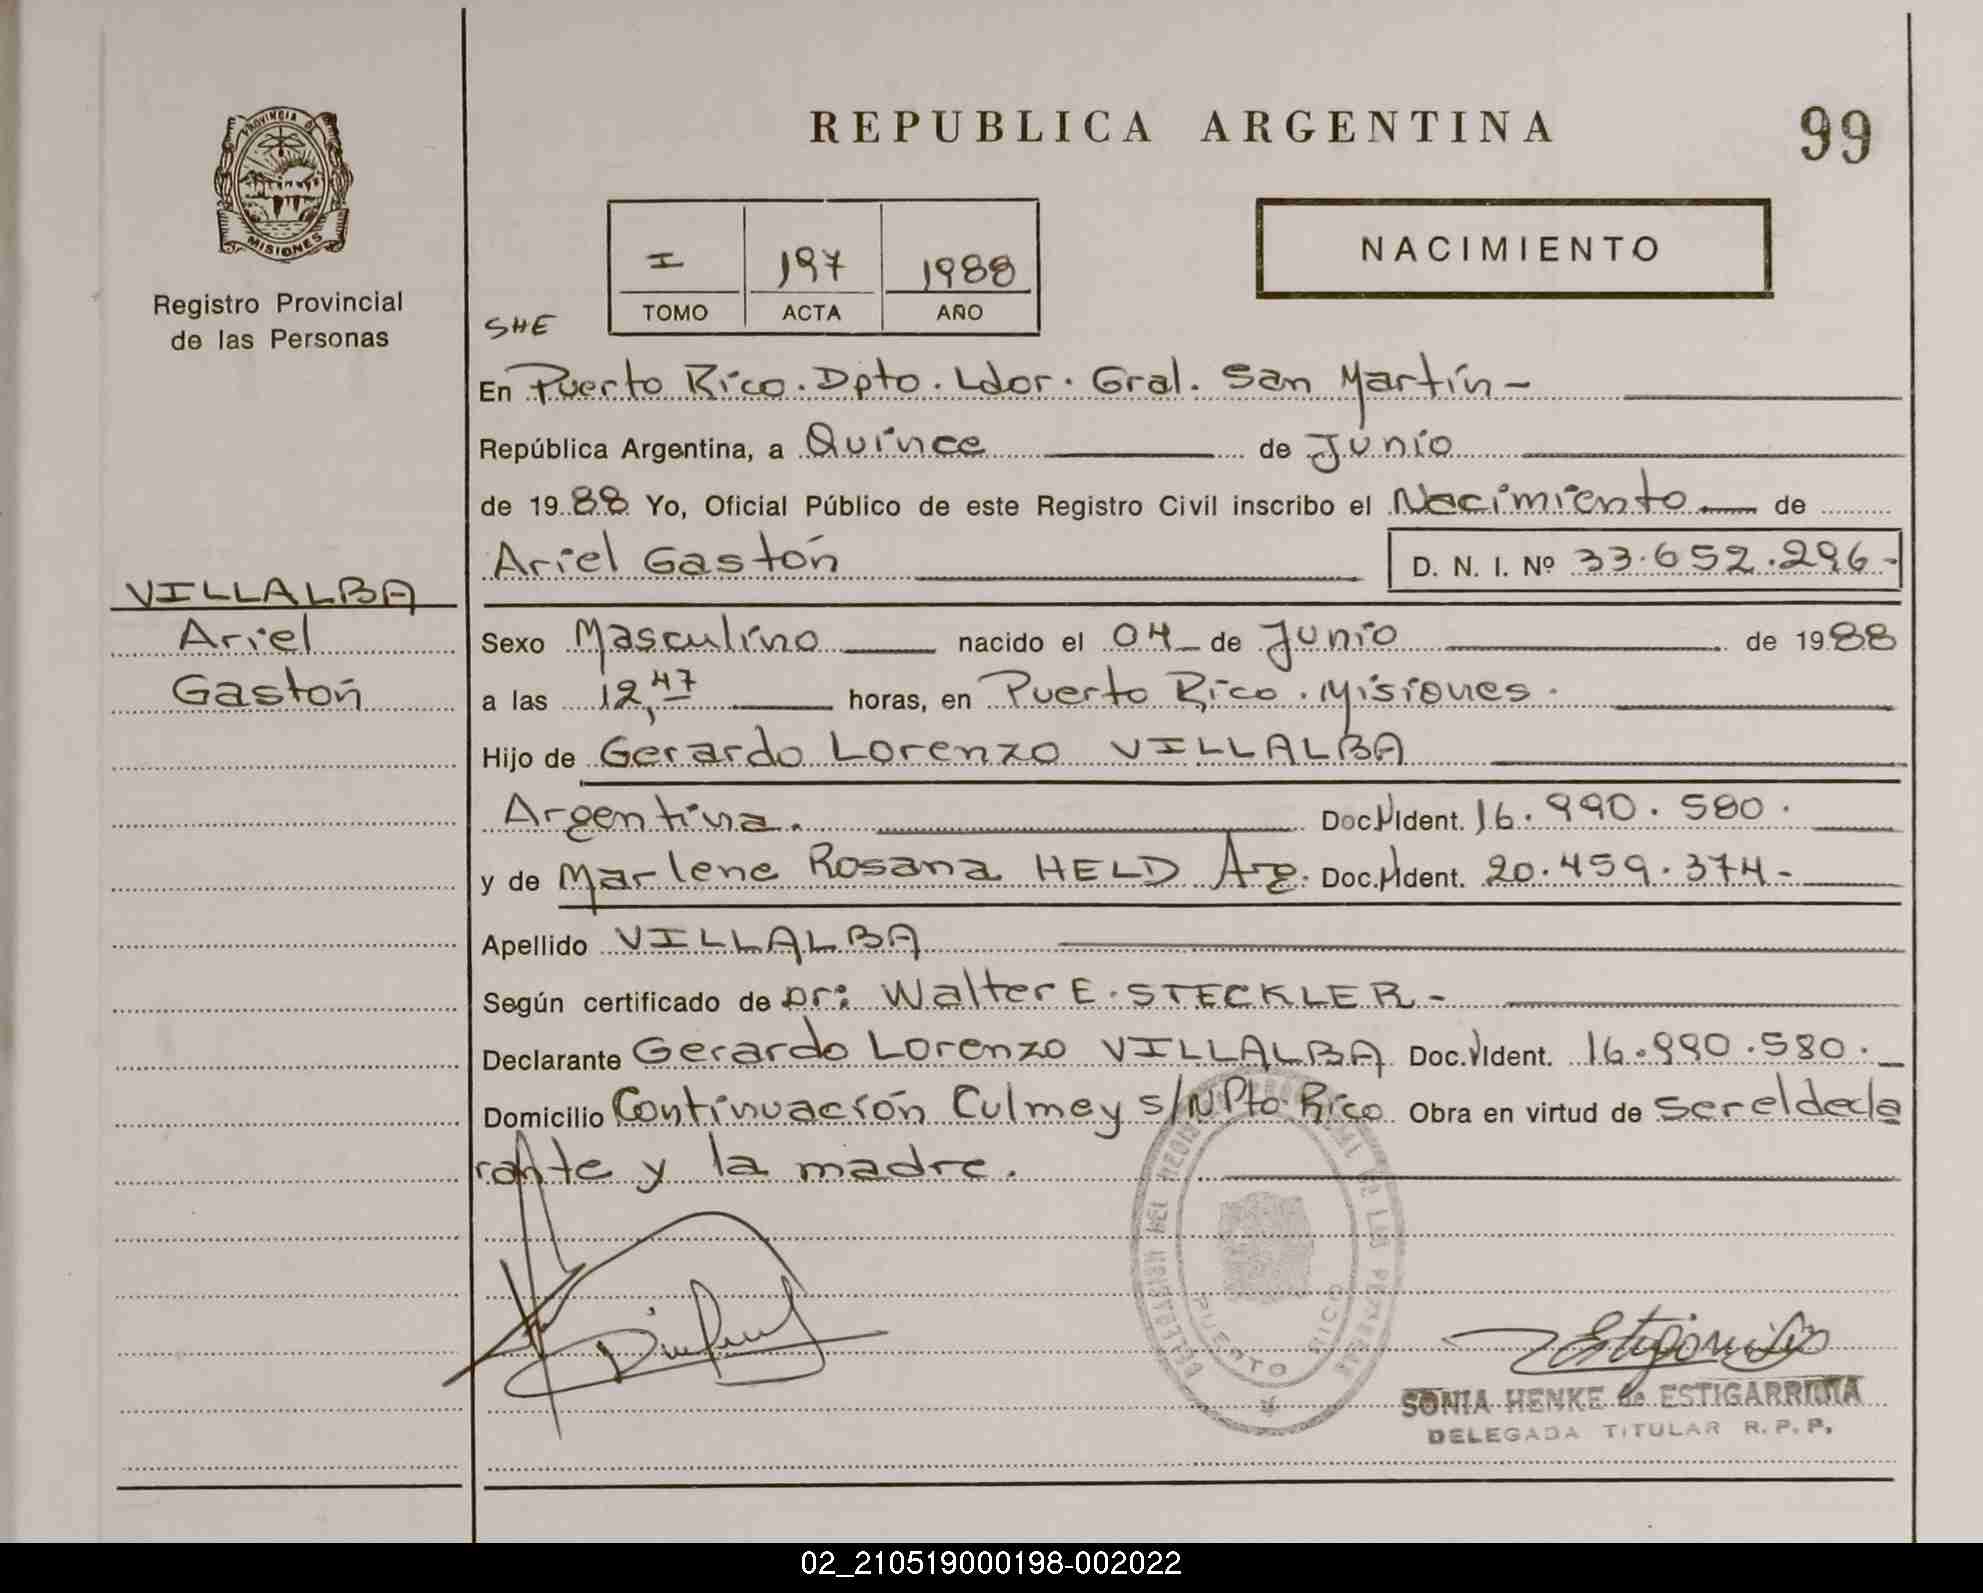 PROVINCIA DE
MISIONES
Registro Provincial
de las Personas
REPUBLICA ARGENTINA
99
I 197 1988
TOMO ACTA AÑO
NACIMIENTO
SHE
En Puerto Rico. Dpto. Ldor. Gral. San Martín -
República Argentina, a Quince de Junio
de 1988 Yo, Oficial Público de este Registro Civil inscribo el Nacimiento de
Ariel Gastón D. N. I. Nº 33.652.296-
VILLALBA
Ariel
Gastón
Sexo Masculino nacido el 04 de Junio de 1988
a las 12,47 horas, en Puerto Rico. Misiones.
Hijo de Gerardo Lorenzo VILLALBA
Argentina. Doc.N Ident. 16.990.580.
y de Marlene Rosana HELD Arg. Doc.N Ident. 20.459.374-
Apellido VILLALBA
Según certificado de Dr: Walter E. STECKLER-
Declarante Gerardo Lorenzo VILLALBA Doc.N Ident. 16.990.580.
Domicilio Continuación Culmey s/N Pto. Rico Obra en virtud de ser el decla
rante y la madre.
DELEGACION DEL REGISTRO PROVINCIAL DE LAS PERSONAS
PUERTO RICO
SONIA HENKE de ESTIGARRIBIA
DELEGADA TITULAR R. P. P.
02_210519000198-002022